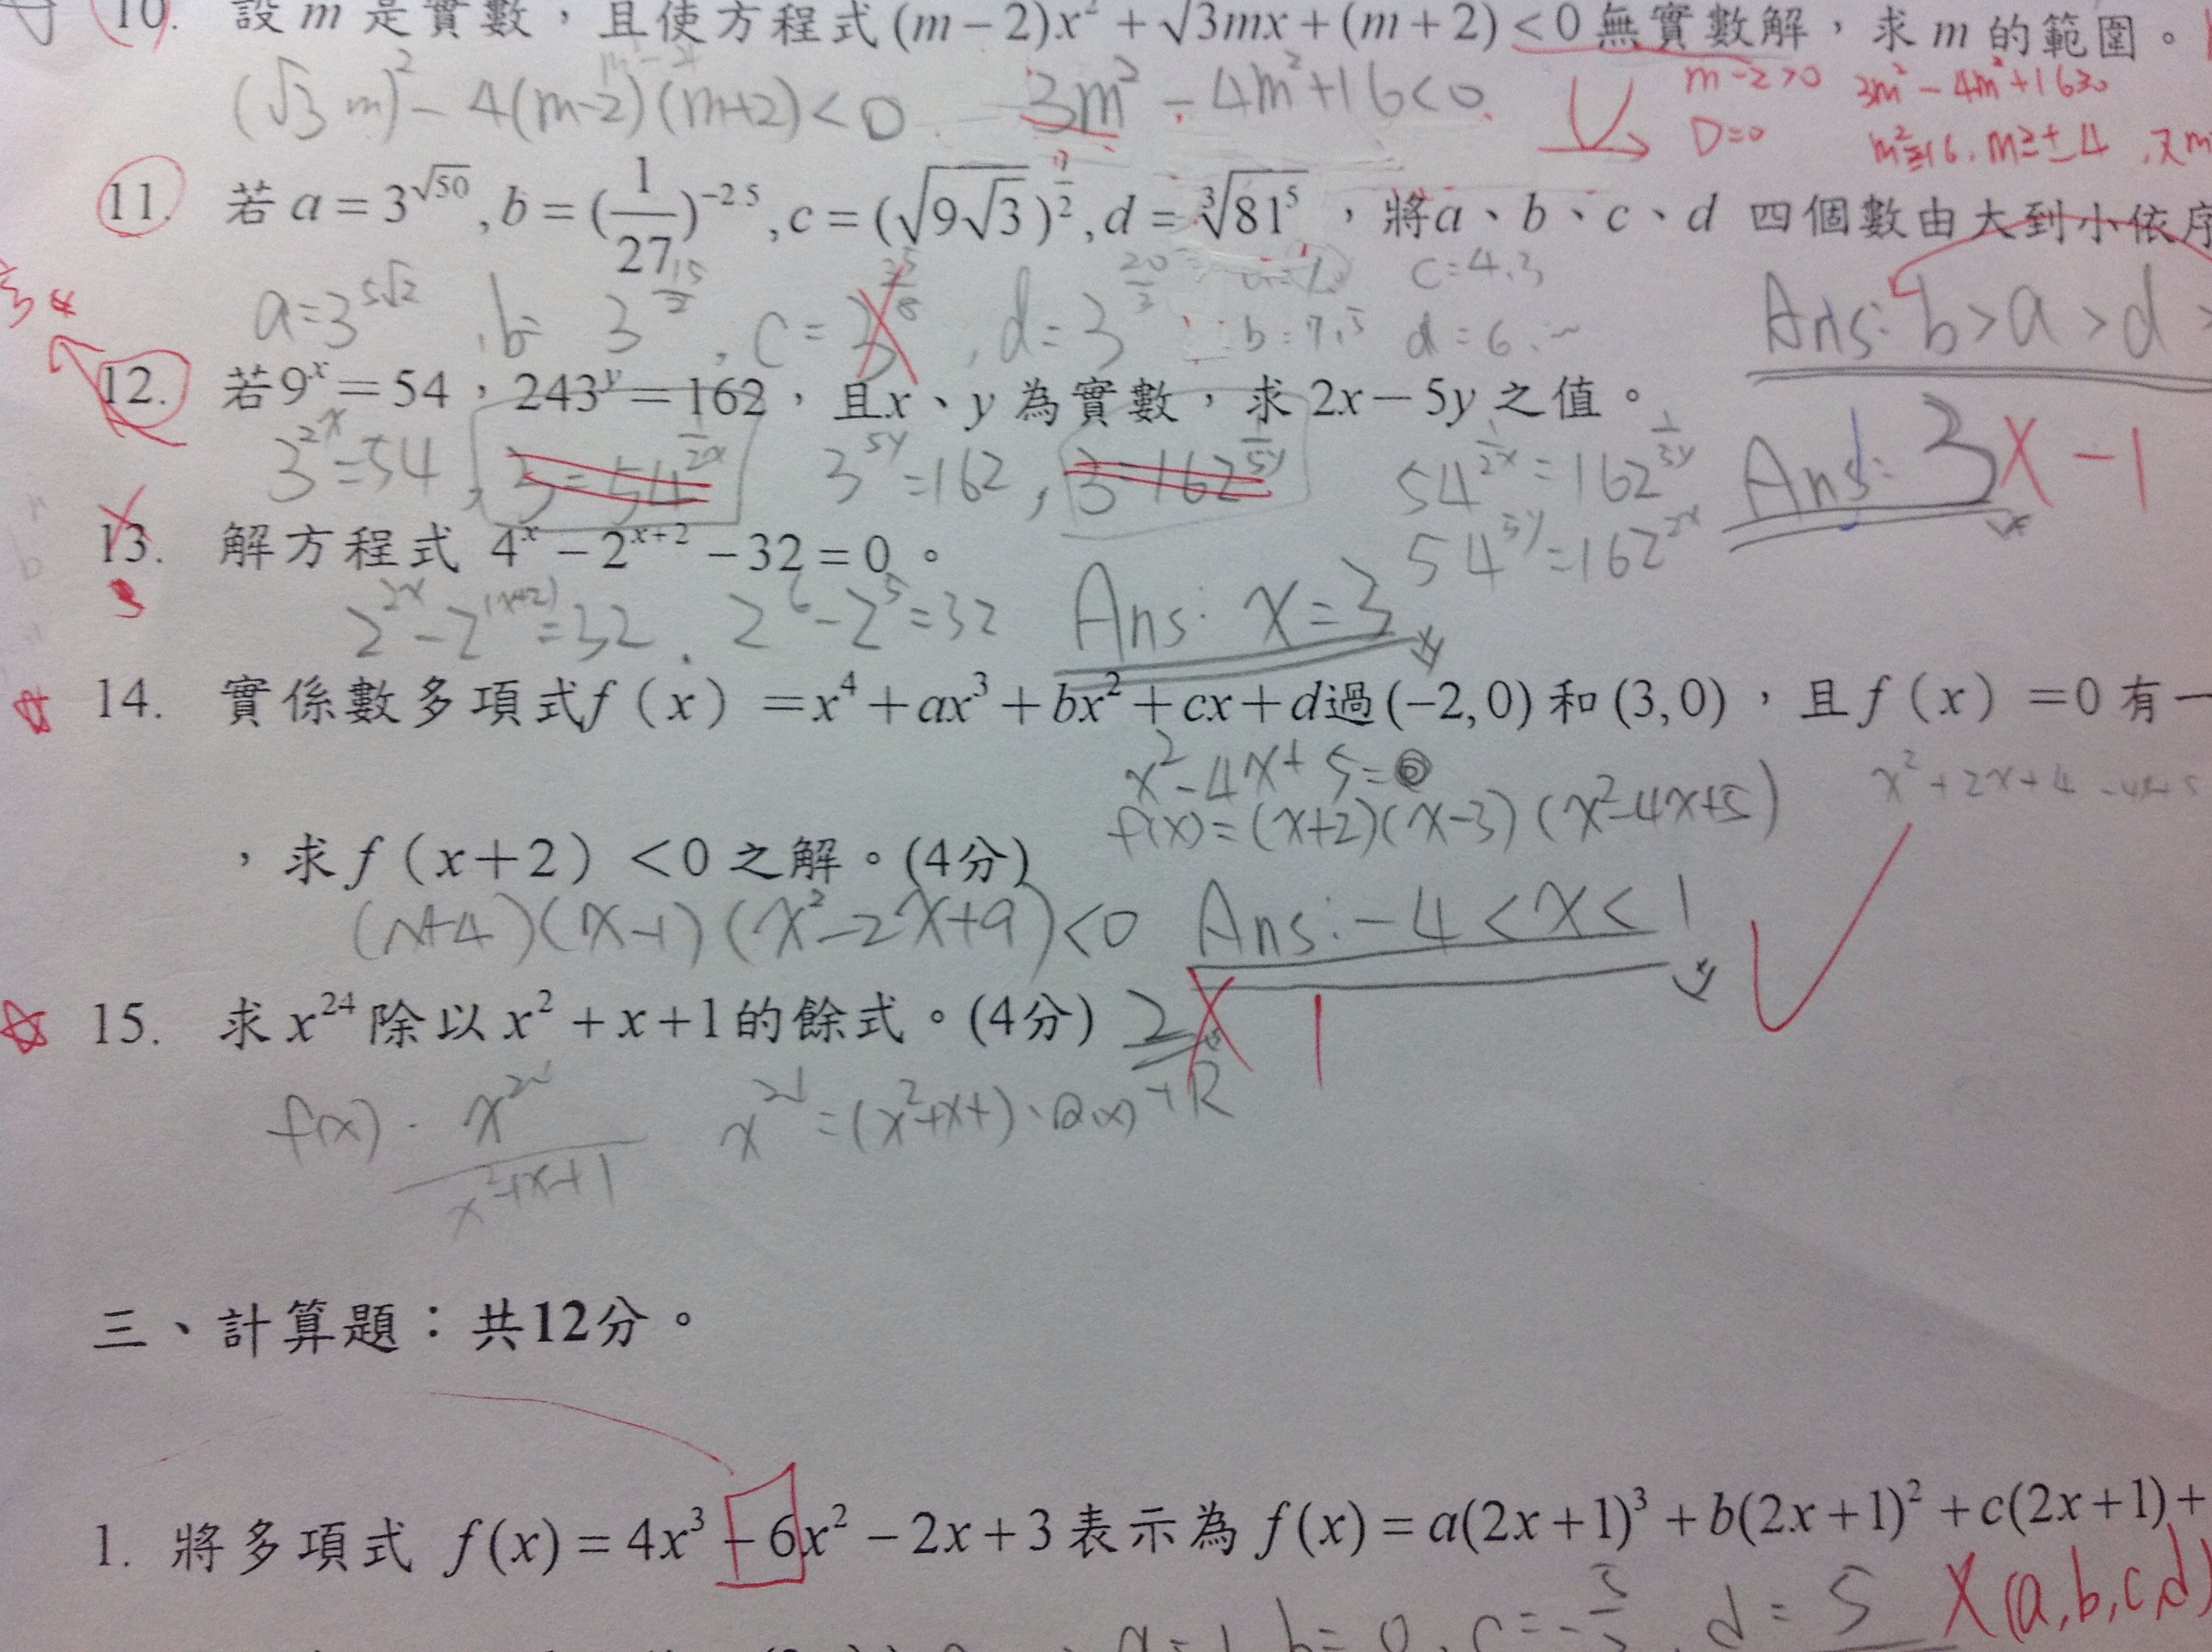 10. 設 m 是實數，且使方程式 (m－2)x² + √3mx + (m + 2) < 0 無實數解，求 m 的範圍。
(√3 m)² - 4(m-2)(m+2) < 0 3m² - 4m² + 16 < 0
m-2>0
D=0
11. 若 a = 3^√50, b = (1/27)^-2.5, c = (√(9√3))^(7/2), d = ³√81⁵，將a、b、c、d 四個數由大到小依序
a=3^(5√2), b= 3^(15/2), c = , d = 3^(20/3) c=4.3
b=7.5 d=6.~
Ans: b>a>d
12. 若 9^x = 54，243^y = 162，且x、y 為實數，求 2x－5y 之值。
3^(2x)=54, 3=54^(1/2x) 3^(5y)=162, 3=162^(1/5y) 54^(1/2x)=162^(1/5y)
54^(5y)=162^(2x)
Ans: 3 X -1
13. 解方程式 4^x － 2^(x+2) － 32 = 0。
3
2^(2x) - 2^(x+2) = 32. 2⁶ - 2⁵ = 32 Ans: x=3
14. 實係數多項式f（x）＝x⁴＋ax³＋bx²＋cx＋d過(－2,0) 和 (3,0)，且 f（x）＝0 有一
x²-4x+5=0 x²+2x+4
f(x)=(x+2)(x-3)(x²-4x+5)
，求 f（x＋2）＜0 之解。(4分)
(x+4)(x-1)(x²-2x+9)<0 Ans: -4<x<1
15. 求 x²⁴ 除以 x² + x +1 的餘式。(4分) 2 X 1
f(x) · x²⁴ x²⁴=(x²+x+1)·Q(x)+R
x²+x+1
三、計算題：共12分。
1. 將多項式 f(x) = 4x³ － 6x² － 2x + 3 表示為 f(x) = a(2x +1)³ + b(2x +1)² + c(2x +1) +
d = 5 X (a,b,c,d)